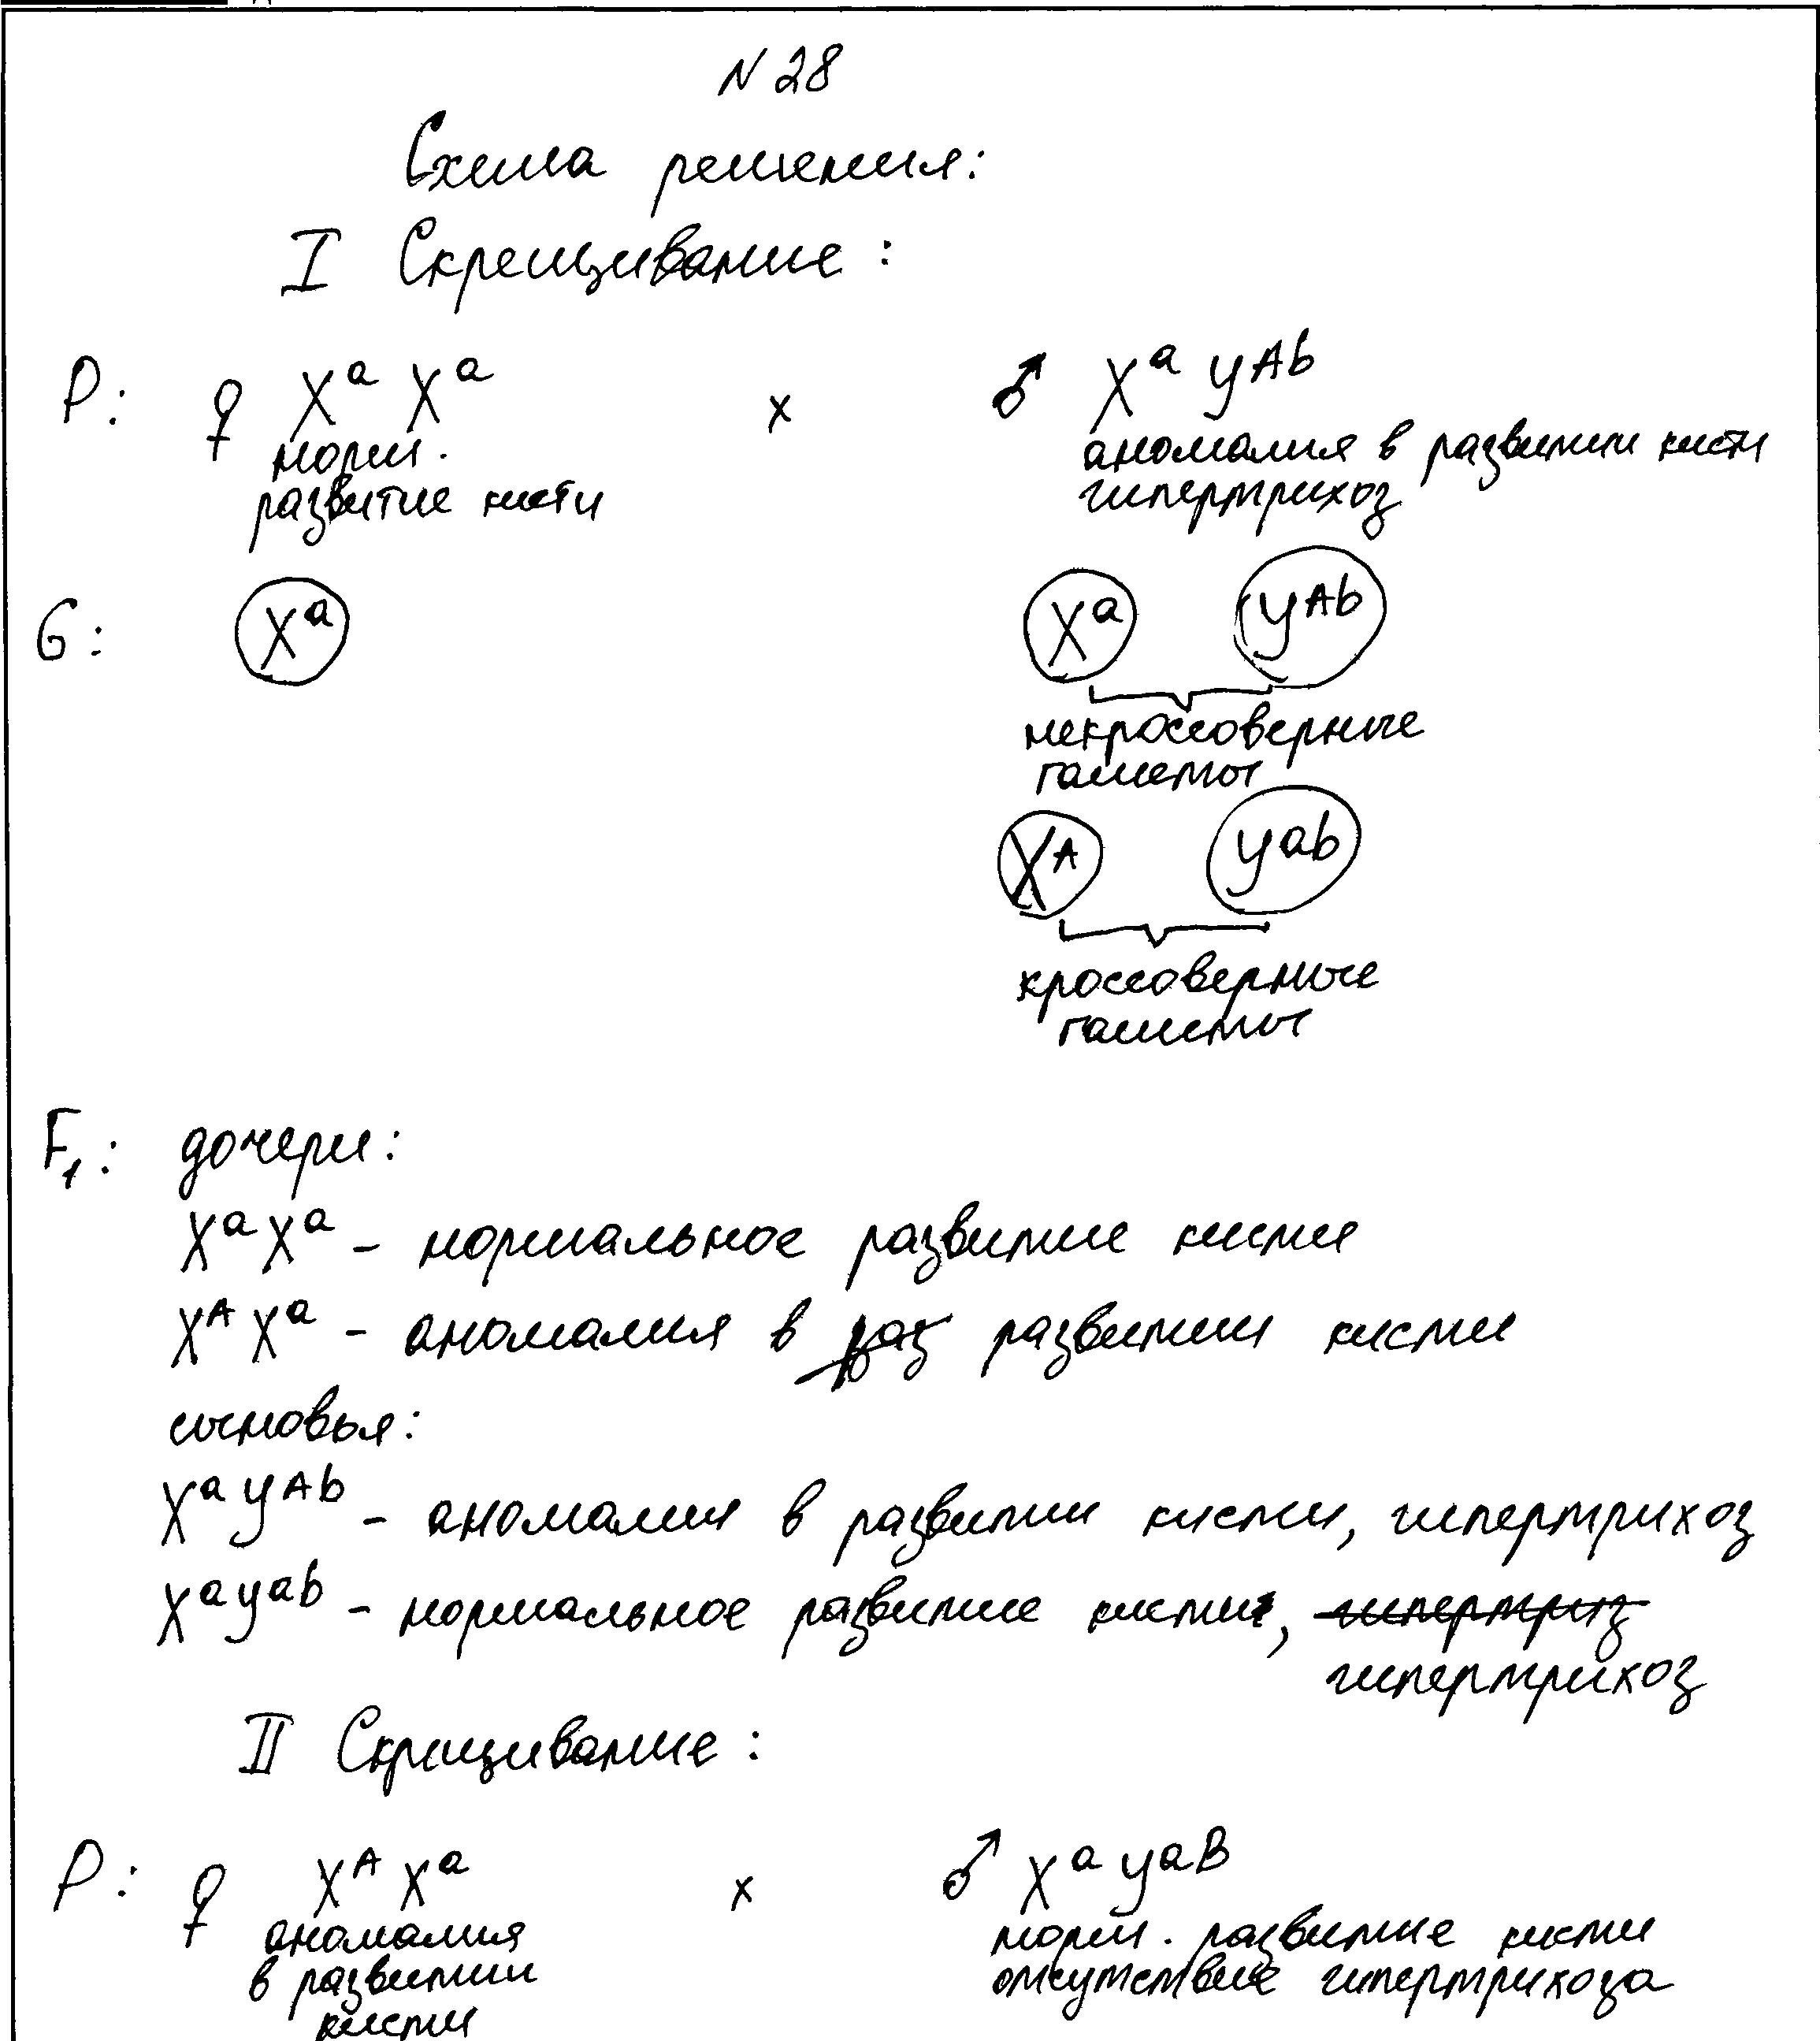 N 28
Схема решения:
I Скрещивание:
P: ♀ Xᵃ Xᵃ x ♂ Xᵃ Yᴬᵇ
норм. аномалия в развитии кисти
развитие кисти гипертрихоз
G: Xᵃ Xᵃ Yᴬᵇ
некроссоверные
гаметы
Xᴬ Yᵃᵇ
кроссоверные
гаметы
F₁: дочери:
XᵃXᵃ - нормальное развитие кисти
XᴬXᵃ - аномалия в раз развитии кисти
сыновья:
XᵃYᴬᵇ - аномалия в развитии кисти, гипертрихоз
XᵃYᵃᵇ - нормальное развитие кисти, гипертриз
гипертрихоз
II Скрещивание:
P: ♀ Xᴬ Xᵃ x ♂ Xᵃ Yᵃᴮ
аномалия норм. развитие кисти
в развитии отсутствие гипертрихоза
кисти